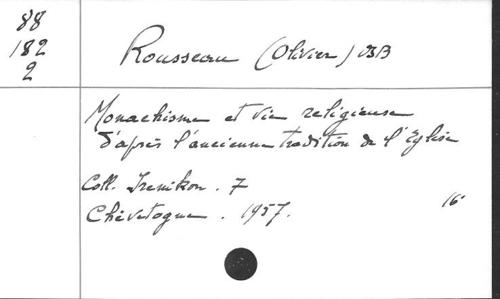 88
182
2
Rousseau (Olivier) OSB
Monachisme et vie religieuse
d'après l'ancienne tradition de l'Eglise
Coll. Irenikon. 7
Chevetogne. 1957.
16°